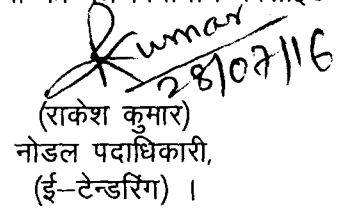 Rkumar
28/07/16
(राकेश कुमार)
नोडल पदाधिकारी,
(ई-टेन्डरिंग) ।